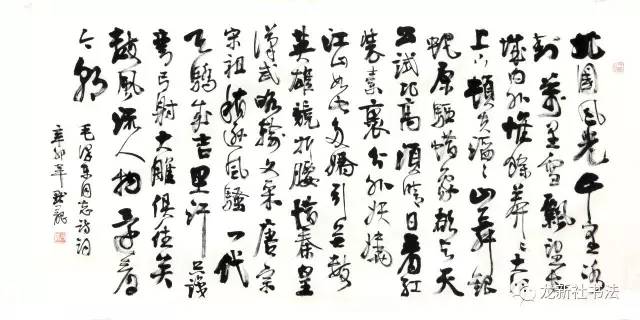 北国风光千里冰
封萬里雪飘望长
城内外惟馀莽々大河
上下顿失滔々山舞银
蛇原驱蜡象欲与天
公试比高须晴日看红
装素裹分外妖娆
江山如此多娇引无数
英雄竞折腰惜秦皇
汉武略输文采唐宗
宋祖稍逊风骚一代
天骄成吉思汗只识
弯弓射大雕俱往矣
数风流人物还看
今朝
毛泽东同志诗词
辛卯年
龙新社书法